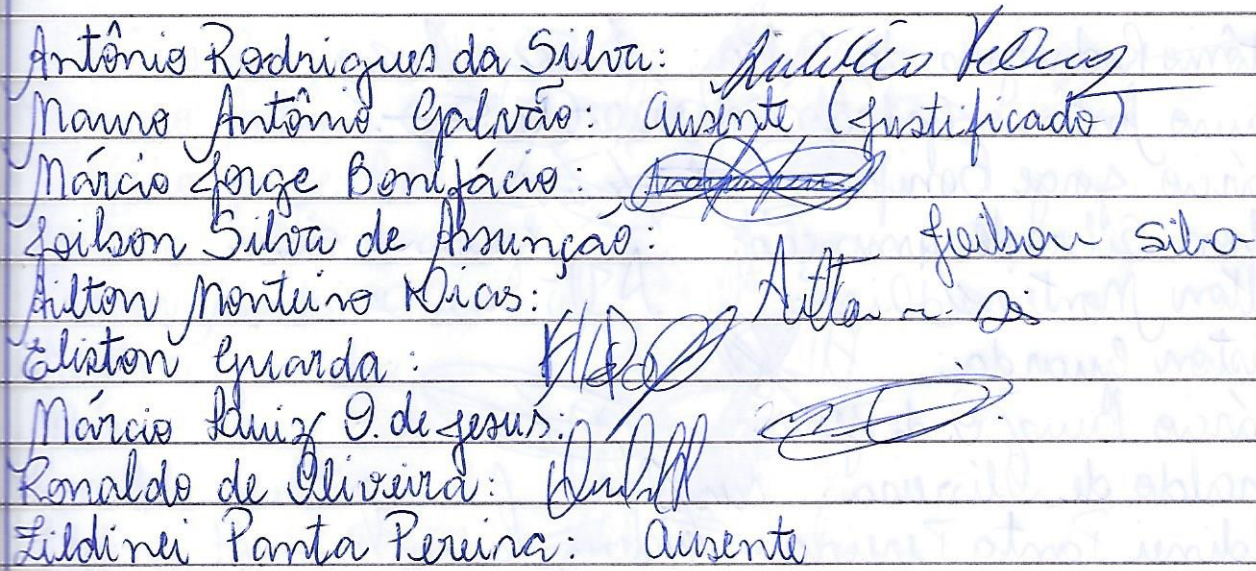 Antônio Rodrigues da Silva:
Mauro Antônio Galvão: Ausente (Justificado)
Márcio Jorge Bonifácio:
Joilson Silva de Assunção: Joilson Silva
Ailton Monteiro Dias: Ailton
Eliston Guarda:
Márcio Luiz O. de Jesus:
Ronaldo de Oliveira:
Zildinei Panta Pereira: Ausente